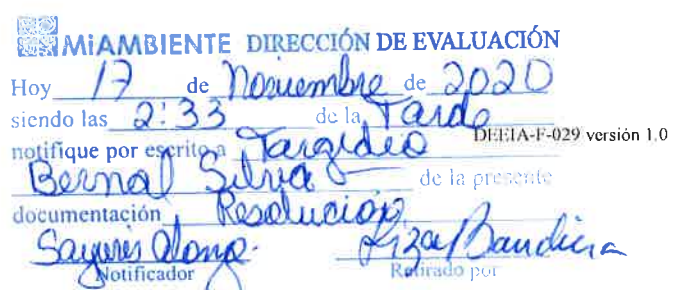 MiAMBIENTE DIRECCIÓN DE EVALUACIÓN
Hoy 17 de Noviembre de 2020
siendo las 2:33 de la Tarde
DEEIA-F-029 versión 1.0
notifique por escrito a Targidio
Bernal Silva de la presente
documentación Resolución
Notificador Retirado por